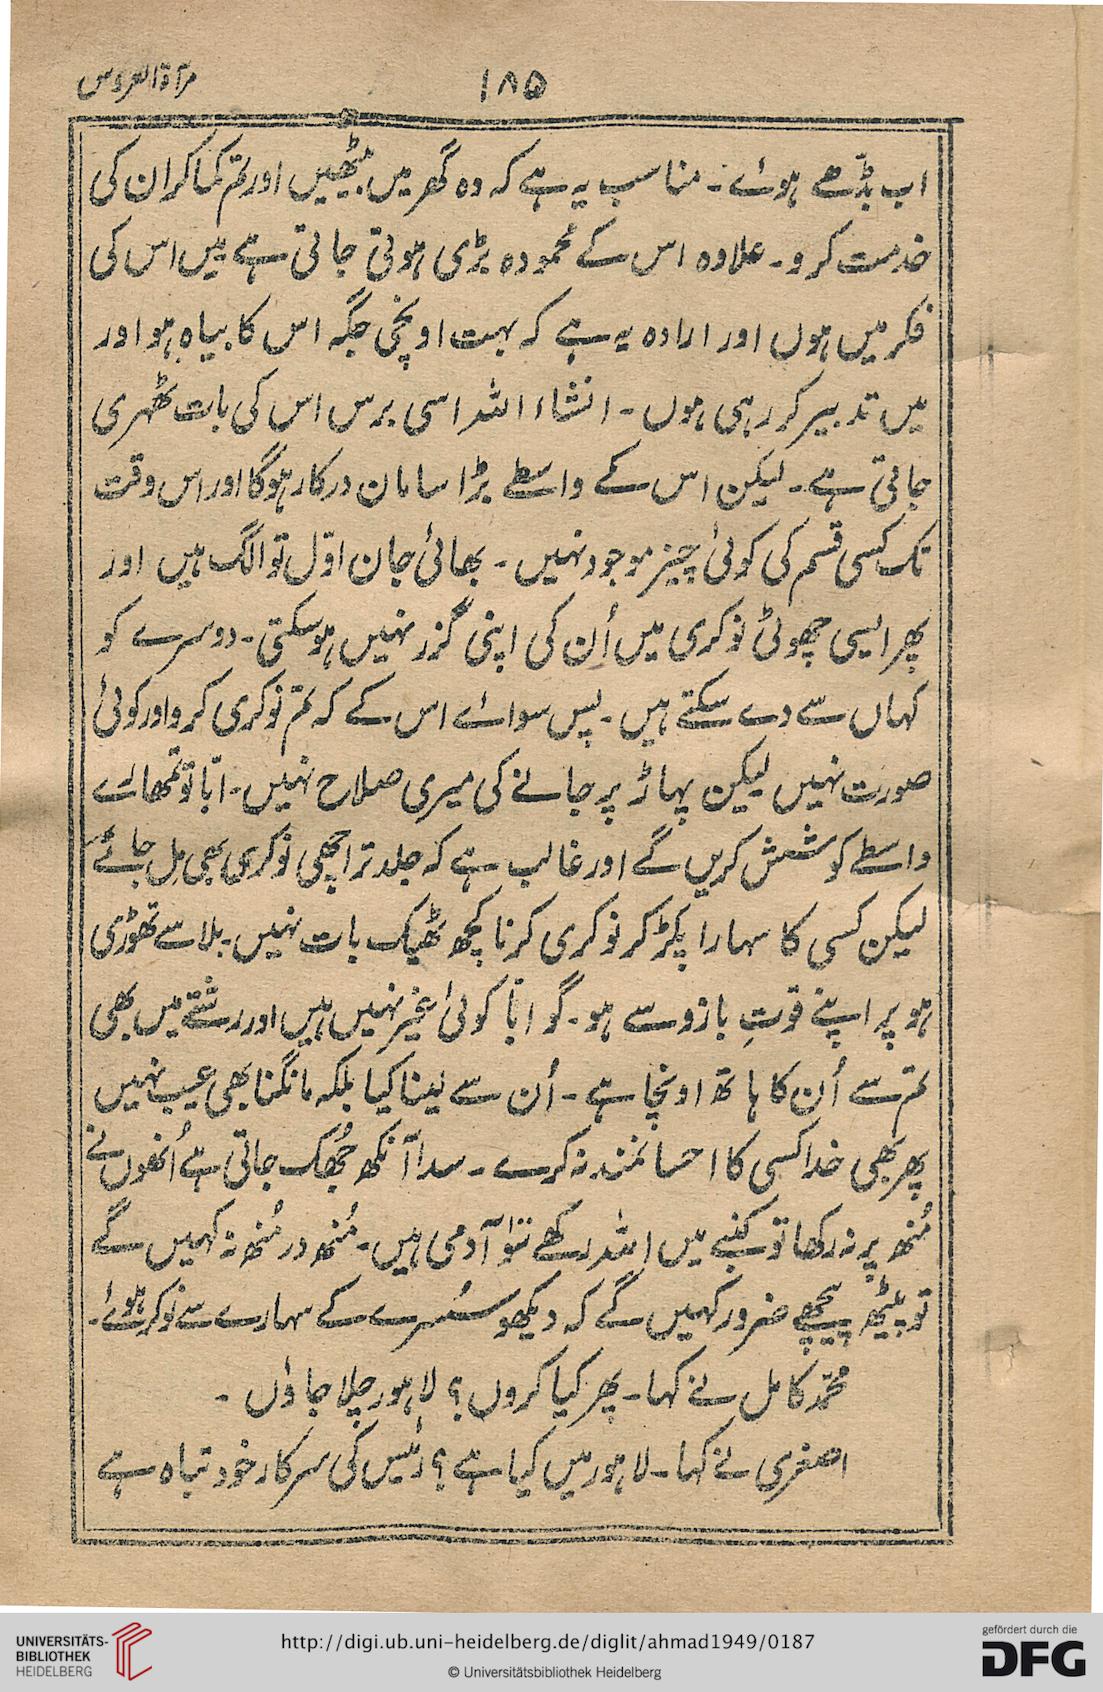 مرآة العروس
۱۸۵
اب بڈّھے ہوئے۔ مناسب یہ ہے کہ وہ گھر میں بیٹھیں اور تم کما کر ان کی
خدمت کرو۔ علاوہ اس کے محمودہ بڑی ہوتی جاتی ہے میں اس کی
فکر میں ہوں اور ارادہ یہ ہے کہ بہت اونچی جگہ اس کا بیاہ ہو اور
میں تدبیر کر رہی ہوں۔ انشاء اللہ اسی برس اس کی بات ٹھہری
جاتی ہے۔ لیکن اس کے واسطے بڑا سامان درکار ہوگا اور اس وقت
تک کسی قسم کی کوئی چیز موجود نہیں۔ بھائی جان اوّل تو الگ ہیں اور
پھر ایسی چھوٹی نوکری میں اُن کی اپنی گزر نہیں ہو سکتی۔ دوسرے کو
کہاں سے دے سکتے ہیں۔ پس سوائے اس کے کہ تم نوکری کرو اور کوئی
صورت نہیں لیکن پہاڑ پر جانے کی میری صلاح نہیں۔ ابّا تو تمھارے
واسطے کوشش کریں گے اور غالب ہے کہ جلد تر اچھی نوکری بھی مِل جائے
لیکن کسی کا سہارا پکڑ کر نوکری کرنا کچھ ٹھیک بات نہیں۔ بلا سے تھوڑی
ہو پر اپنے قوتِ بازو سے ہو۔ گو ابّا کوئی غیر نہیں ہیں اور رشتے میں بھی
تم سے اُن کا ہاتھ اونچا ہے۔ اُن سے لینا کیا بلکہ مانگنا بھی عیب نہیں
پھر بھی خدا کسی کا احسانمند نہ کرے۔ سدا آنکھ جُھک جاتی ہے اُنھوں نے
مُنھ پر نہ رکھا تو کنبے میں اللہ رکھے سَو آدمی ہیں۔ مُنھ در مُنھ نہ کہیں گے
تو پیٹھ پیچھے ضرور کہیں گے کہ دیکھو سُسرے کے سہارے سے نوکر ہوئے۔
محمّد کامل نے کہا۔ پھر کیا کروں؟ لاہور چلا جاؤں۔
اصغری نے کہا۔ لاہور میں کیا ہے؟ رئیس کی سرکار خود تباہ ہے
UNIVERSITÄTS-
BIBLIOTHEK
HEIDELBERG
http://digi.ub.uni-heidelberg.de/diglit/ahmad1949/0187
© Universitätsbibliothek Heidelberg
gefördert durch die
DFG